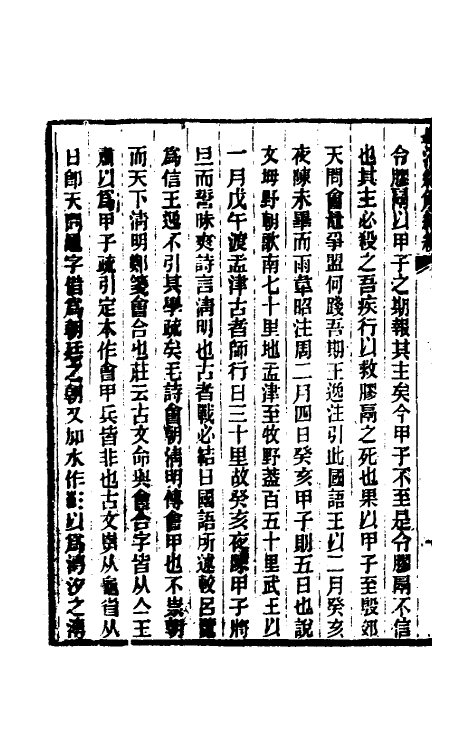 令膠鬲以甲子之期報其主矣今甲子不至是令膠鬲不信
也其主必殺之吾疾行以救膠鬲之死也果以甲子至殷郊
天問會鼂爭盟何踐吾期王逸注引此國語王以二月癸亥
夜陳未畢而雨韋昭注周二月四日癸亥甲子則五日也說
文坶野朝歌南七十里地孟津至牧野蓋百五十里武王以
一月戊午渡孟津古者師行日三十里故癸亥夜陳甲子將
旦而誓昧爽詩言淸明也古者戰必結日國語所述較呂覽
爲信王逸不引其學疏矣毛詩會朝淸明傳會甲也不崇朝
而天下淸明鄭箋會合也莊云古文命與會合字皆从亼王
肅以爲甲子疏引定本作會甲兵皆非也古文 从黽省从
日卽天問鼂字借爲朝廷之朝又加水作 以爲潮汐之潮